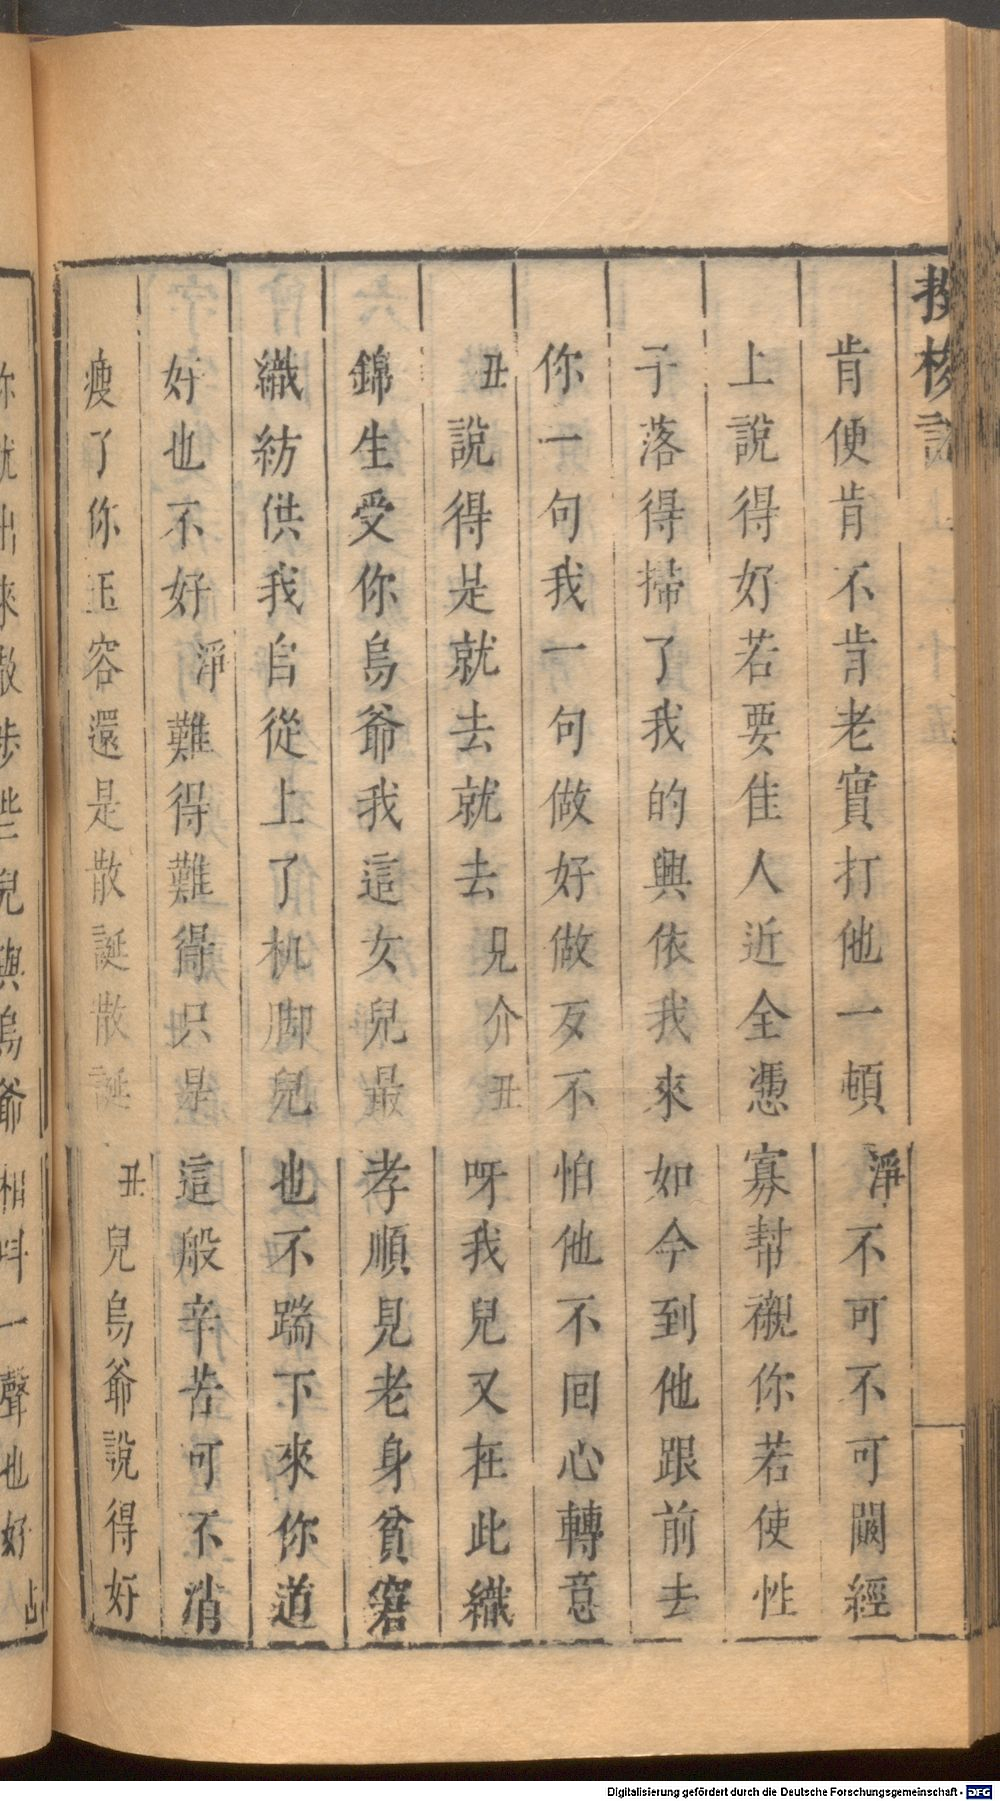 投梭記
肯便肯不肯老實打他一頓淨不可不可闝經
上說得好若要佳人近全憑寡幫襯你若使性
子落得掃了我的興依我來如今到他跟前去
你一句我一句做好做歹不怕他不回心轉意
丑說得是就去就去見介丑呀我兒又在此織
錦生受你烏爺我這女兒最孝順見老身貧窘
織紡供我自從上了机脚兒也不踹下來你道
好也不好淨難得難得只是這般辛苦可不消
瘦了你玉容還是散誕散誕丑兒烏爺說得好
你就出來散步些兒與烏爺相呌一聲也好占
Digitalisierung gefördert durch die Deutsche Forschungsgemeinschaft - DFG